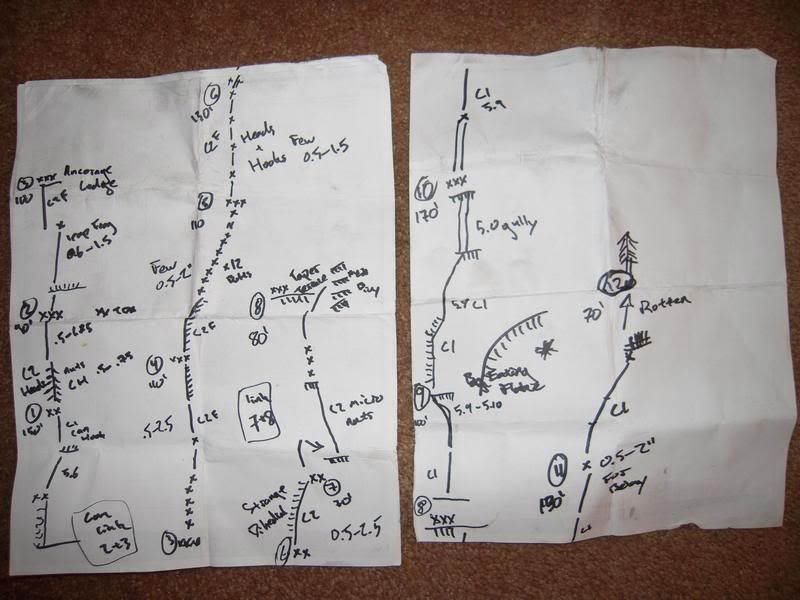 ③ XXX Anchorage
Ledge
100'
C2F
.6-1.5
② XXX
90'
.5-.85
C2
Heads
.5-.75
① XX
150'
C1
Cam
Hook
5.6
Can
Link
2-3
⑥
130'
C2F
Heads
+
Hooks
Few
0.5-1.5
⑤ XXX
110
X12
Bolts
Few
0.5-2"
C2F
④ XXX
110'
C2F
.5-2.5
③
⑧ XXX
80'
Link
7+8
C2 Micro
nuts
⑦ XX
70'
Strange
Dihedral
C2
0.5-2.5
⑥ XX
C1
5.9
⑩ XXX
170'
5.0 gully
5.9 C1
C1
Big Eating
Flake
⑨
100'
5.9-5.10
C1
⑧
XXX
⑫
70'
Rotten
C1
⑪
0.5-2"
For
Belay
C1